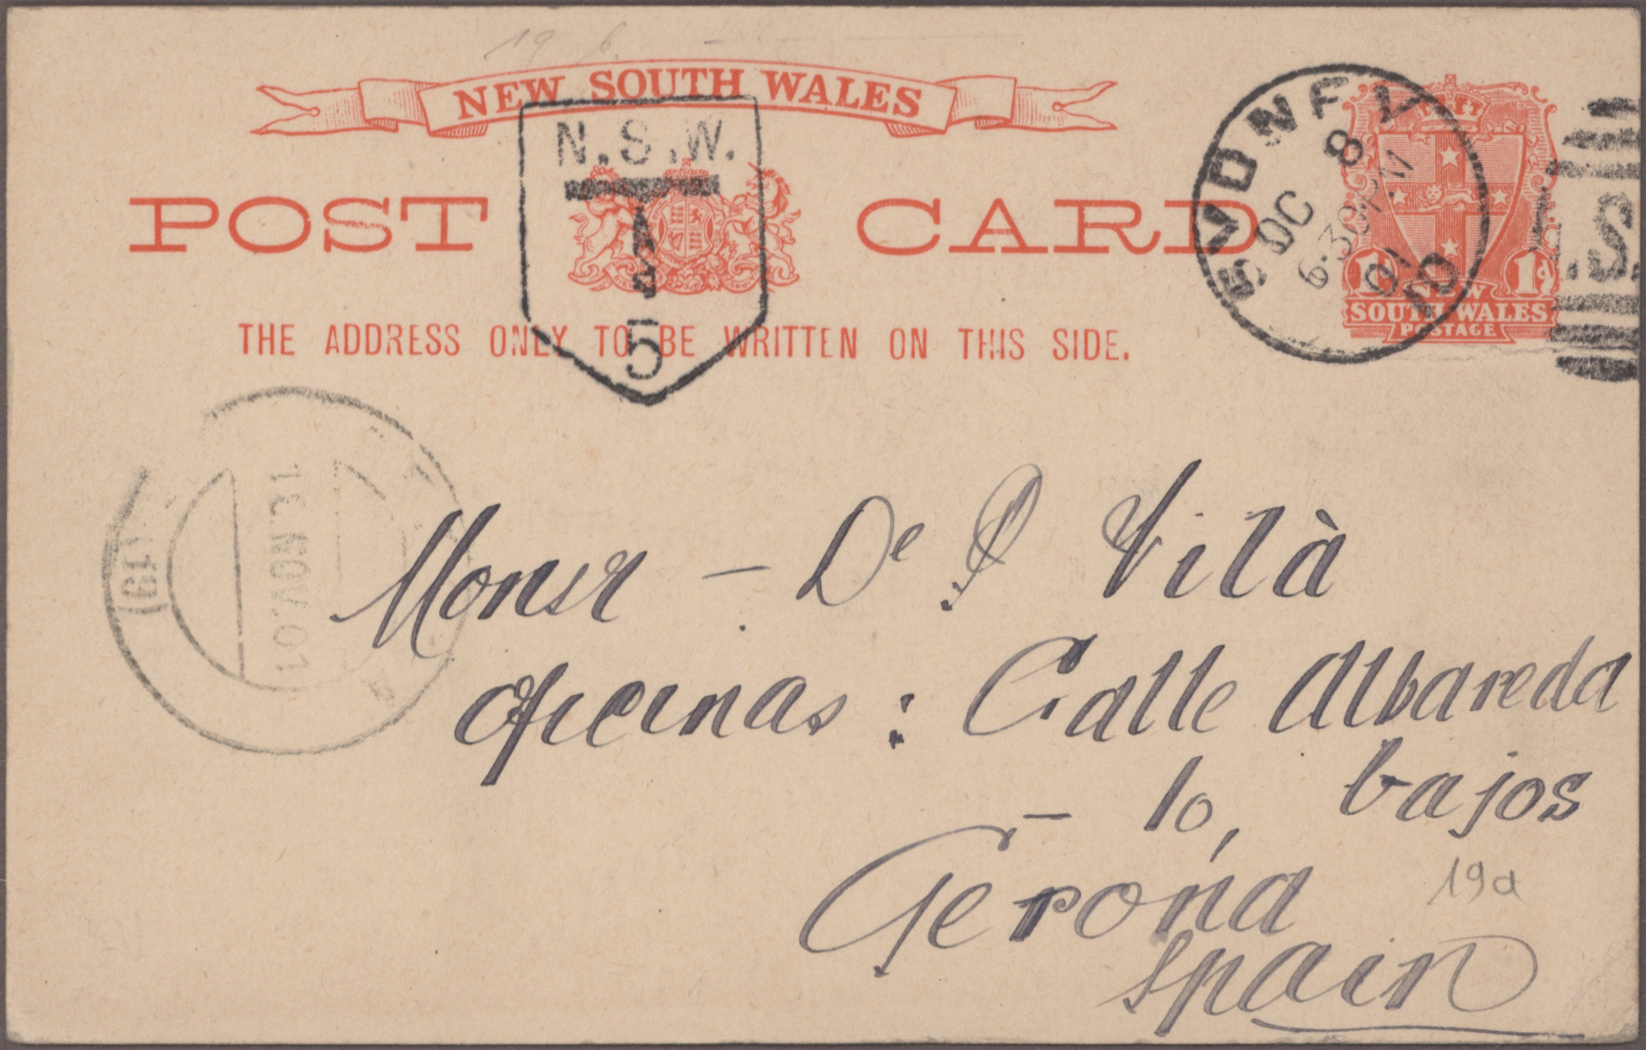 NEW SOUTH WALES
POST CARD
THE ADDRESS ONLY TO BE WRITTEN ON THIS SIDE.
N.S.W.
T
5
SYDNEY
OC 8
6·30 PM
01
1d 1d
NEW
SOUTH WALES
POSTAGE
.S.
NOV.01
(19)
Monsr — De P Vilà
oficinas : Calle Albareda
— 10, bajos
Gerona
Spain
19a